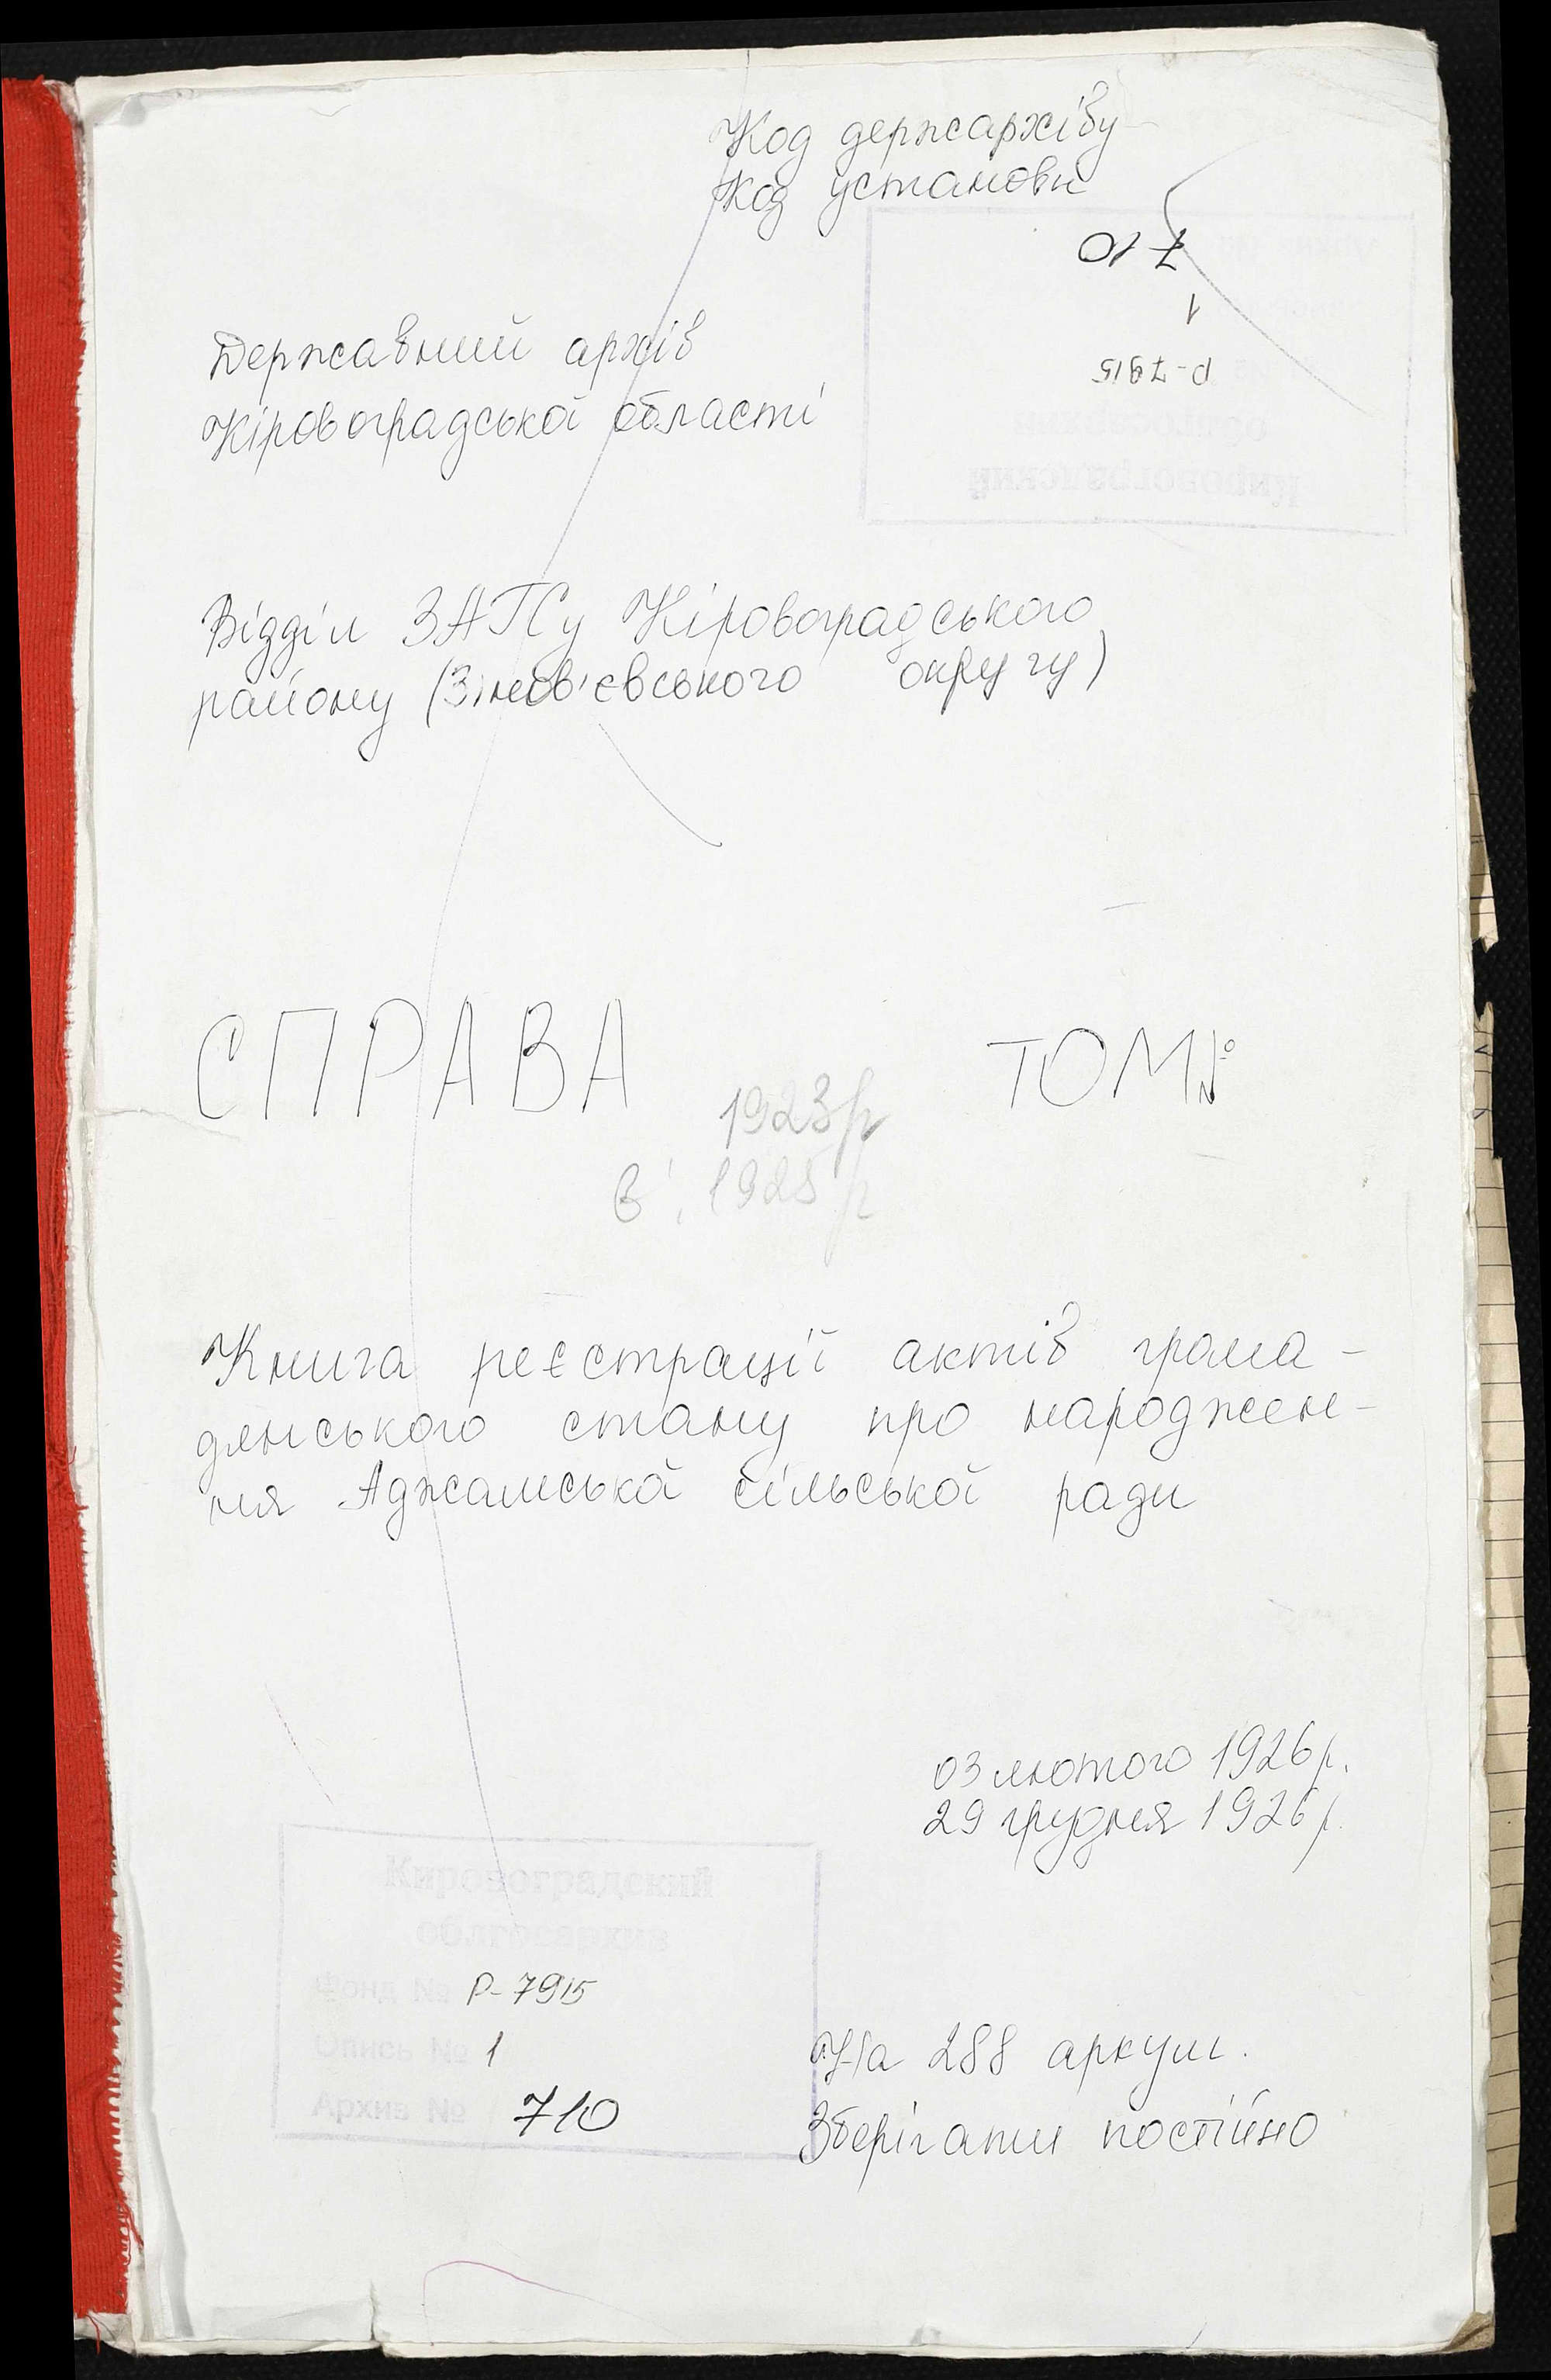 Код держархіву
Код установи
710
1
Р-7915
Кировоградский
облгосархив
Державний архів
Кіровоградської області
Відділ ЗАГСу Кіровоградського
району (Зінов'євського округу)
СПРАВА ТОМ №
1923р
і 1925 р
Книга реєстрації актів грома-
дянського стану про народжен-
ня Аджамської сільської ради
03 лютого 1926 р.
29 грудня 1926 р.
Кировоградский
облгосархив
Фонд № Р-7915
Опись № 1
Архив № 710
На 288 аркуш.
Зберігати постійно